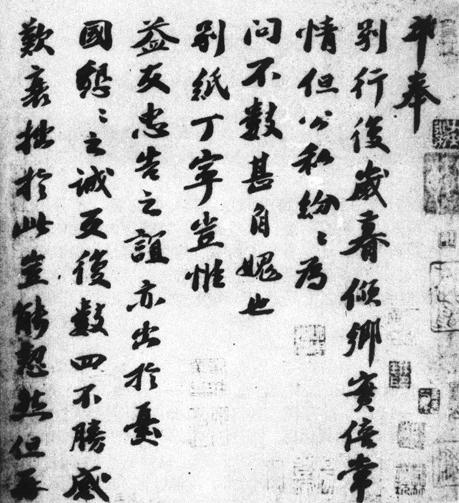 奉
別行後歲暮傾鄉實倍常
情但公私紛〻為
問不數甚自媿也
別紙丁寧豈惟
益友忠告之誼亦出於憂
國懇〻之誠反復數四不勝感
歎衰拙於此豈能恝然但